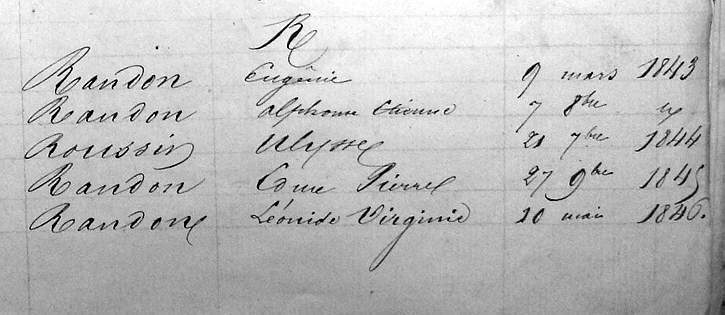 R
Randon Eugénie 9 mars 1843
Randon Alphonse Etienne 7 8bre
Roussin Ulysse 21 7bre 1844
Randon Edme Pierre 27 9bre 1845
Randon Léonide Virginie 20 mai 1846.